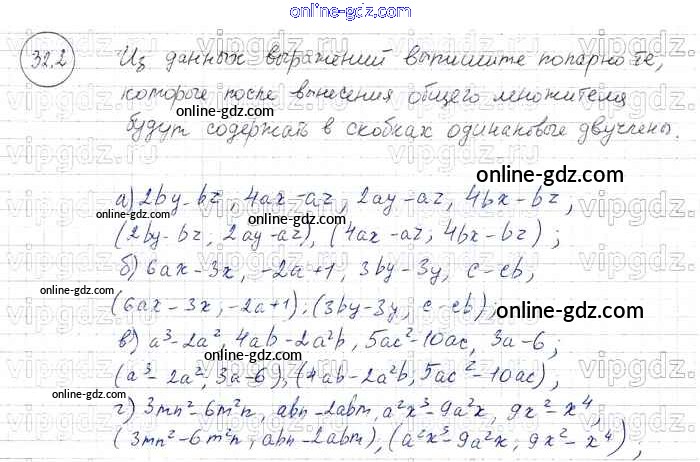 online-gdz.com
32.2 Из данных выражений выпишите попарно те,
которые после вынесения общего множителя
будут содержать в скобках одинаковые двучлены.
online-gdz.com
online-gdz.com
online-gdz.com
а) 2by-bz, 4ax-az, 2ay-az, 4bx-bz,
online-gdz.com
online-gdz.com
(2by-bz; 2ay-az), (4ax-az; 4bx-bz);
online-gdz.com
б) 6ax-3x, -2a+1, 3by-3y, c-cb,
online-gdz.com
(6ax-3x, -2a+1), (3by-3y, c-cb);
online-gdz.com
в) a³-2a², 4ab-2a²b, 5ac²-10ac, 3a-6;
online-gdz.com
(a³-2a², 3a-6), (4ab-2a²b, 5ac²-10ac),
online-gdz.com
г) 3mn²-6m²n, abn-2abm, a²x³-9a²x, 9x²-x⁴,
(3mn²-6m²n, abn-2abm), (a²x³-9a²x; 9x²-x⁴),